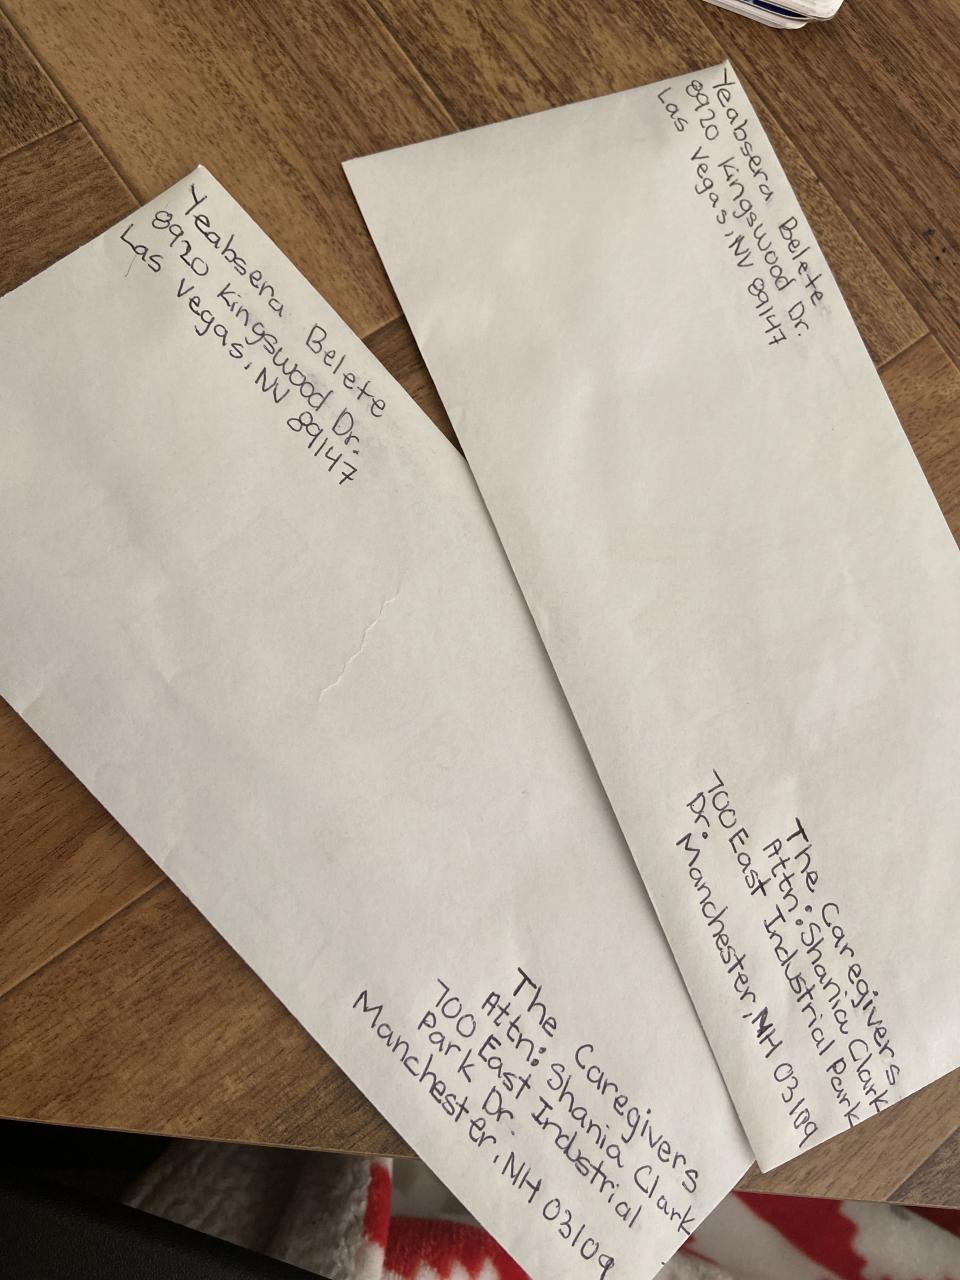 Yeabsera Belete
8920 Kingswood Dr.
Las Vegas, NV 89147
The Caregivers
Attn: Shania Clark
700 East Industrial
Park Dr.
Manchester, NH 03109
Yeabsera Belete
8920 Kingswood Dr.
Las Vegas, NV 89147
The Caregivers
Attn: Shania Clark
700 East Industrial Park
Dr. Manchester, NH 03109